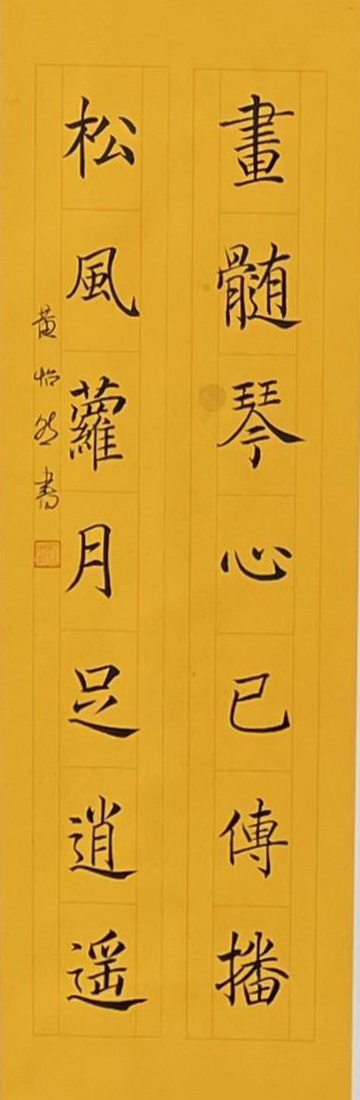 畫髓琴心已傳播
松風蘿月足逍遥
黃怡然書